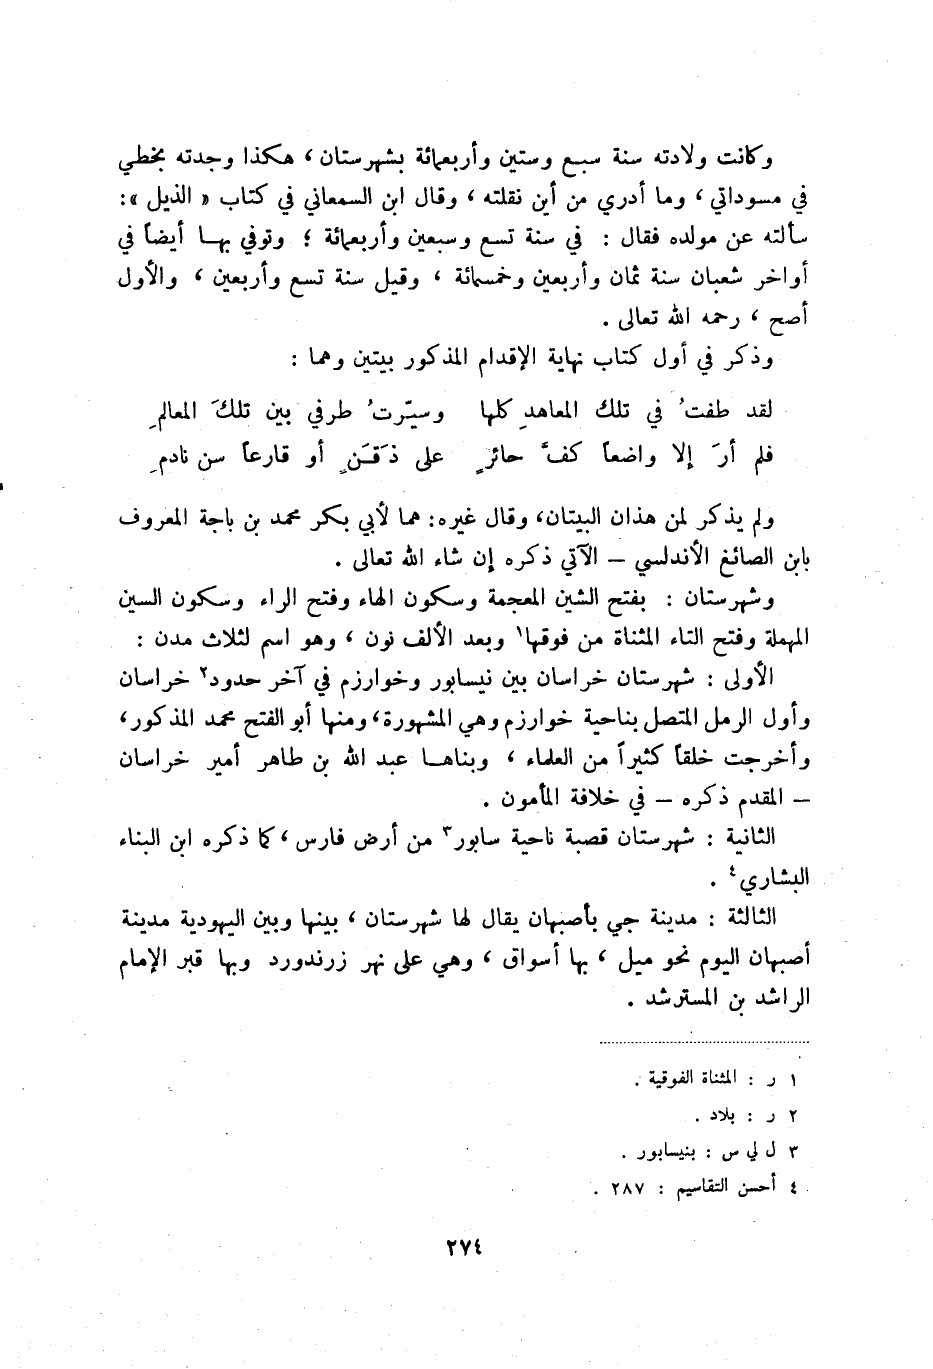 وكانت ولادته سنة سبع وستين وأربعمائة بشهرستان ، هكذا وجدته بخطي
في مسوداتي ، وما أدري من أين نقلته ، وقال ابن السمعاني في كتاب « الذيل » :
سألته عن مولده فقال : في سنة تسع وسبعين وأربعمائة ؛ وتوفي بهـا أيضاً في
أواخر شعبان سنة ثمان وأربعين وخمسمائة ، وقيل سنة تسع وأربعين ، والأول
أصح ، رحمه الله تعالى .
وذكر في أول كتاب نهاية الإقدام المذكور بيتين وهما :
لقد طفتُ في تلك المعاهدِ كلها وسيّرتُ طرفي بين تلكَ المعالمِ
فلم أرَ إلا واضعاً كفَّ حائرٍ على ذَقَنٍ أو قارعاً سن نادمِ
ولم يذكر لمن هذان البيتان، وقال غيره: هما لأبي بكر محمد بن باجة المعروف
بابن الصائغ الأندلسي – الآتي ذكره إن شاء الله تعالى .
وشهرستان : بفتح الشين المعجمة وسكون الهاء وفتح الراء وسكون السين
المهملة وفتح التاء المثناة من فوقها١ وبعد الألف نون ، وهو اسم لثلاث مدن :
الأولى : شهرستان خراسان بين نيسابور وخوارزم في آخر حدود٢ خراسان
وأول الرمل المتصل بناحية خوارزم وهي المشهورة، ومنها أبو الفتح محمد المذكور،
وأخرجت خلقاً كثيراً من العلماء ، وبناهـا عبد الله بن طاهر أمير خراسان
– المقدم ذكره – في خلافة المأمون .
الثانية : شهرستان قصبة ناحية سابور٣ من أرض فارس ، كما ذكره ابن البناء
البشاري٤ .
الثالثة : مدينة جي بأصبهان يقال لها شهرستان ، بينها وبين اليهودية مدينة
أصبهان اليوم نحو ميل ، بها أسواق ، وهي على نهر زرندورد وبها قبر الإمام
الراشد بن المسترشد .
١ ر : المثناة الفوقية .
٢ ر : بلاد .
٣ ل لي س : بنيسابور .
٤ أحسن التقاسيم : ٢٨٧ .
٢٧٤